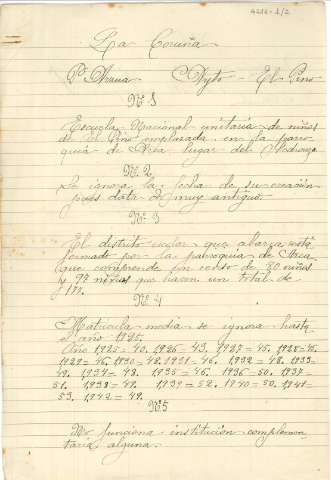 4218-1/2
La Coruña
Pº Arzua - Ayto - El Pino
Nº 1
Escuela Nacional unitaria de niños
de El Pino emplazada en la parro-
quia de Arca lugar del
Nº 2
Se ignora la fecha de su creación
pues data muy antiguo.
Nº 3
El distrito escolar que abarca está
formado por la parroquia de Arca
que comprende un censo de 80 niños
y 97 niñas que hacen un total de
177.
Nº 4
Matrícula media se ignora hasta
el año 1925.
Año 1925=40. 1926=43. 1927=45. 1928=45.
1929=46. 1930=48. 1931=46. 1932=48. 1933=
49. 1934=48. 1935=46. 1936=50. 1937=
51. 1938=49. 1939=52. 1940=50. 1941=
53. 1942=49.
Nº 5
No funciona institución complemen-
taria alguna.